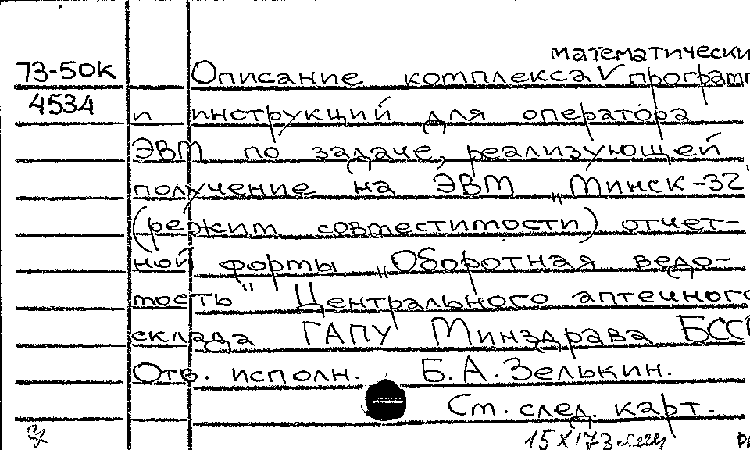 математически
73-50К Описание комплекса V программ
4534 и инструкций для оператора
ЭВМ по задаче, реализующей
получение на ЭВМ "Минск-32"
(режим совместимости) отчет-
ной формы "Оборотная ведо-
мость" Центрального аптечного
склада ГАПУ Минздрава БССР
Отв. исполн. Б.А.Зелькин.
См. след. карт.